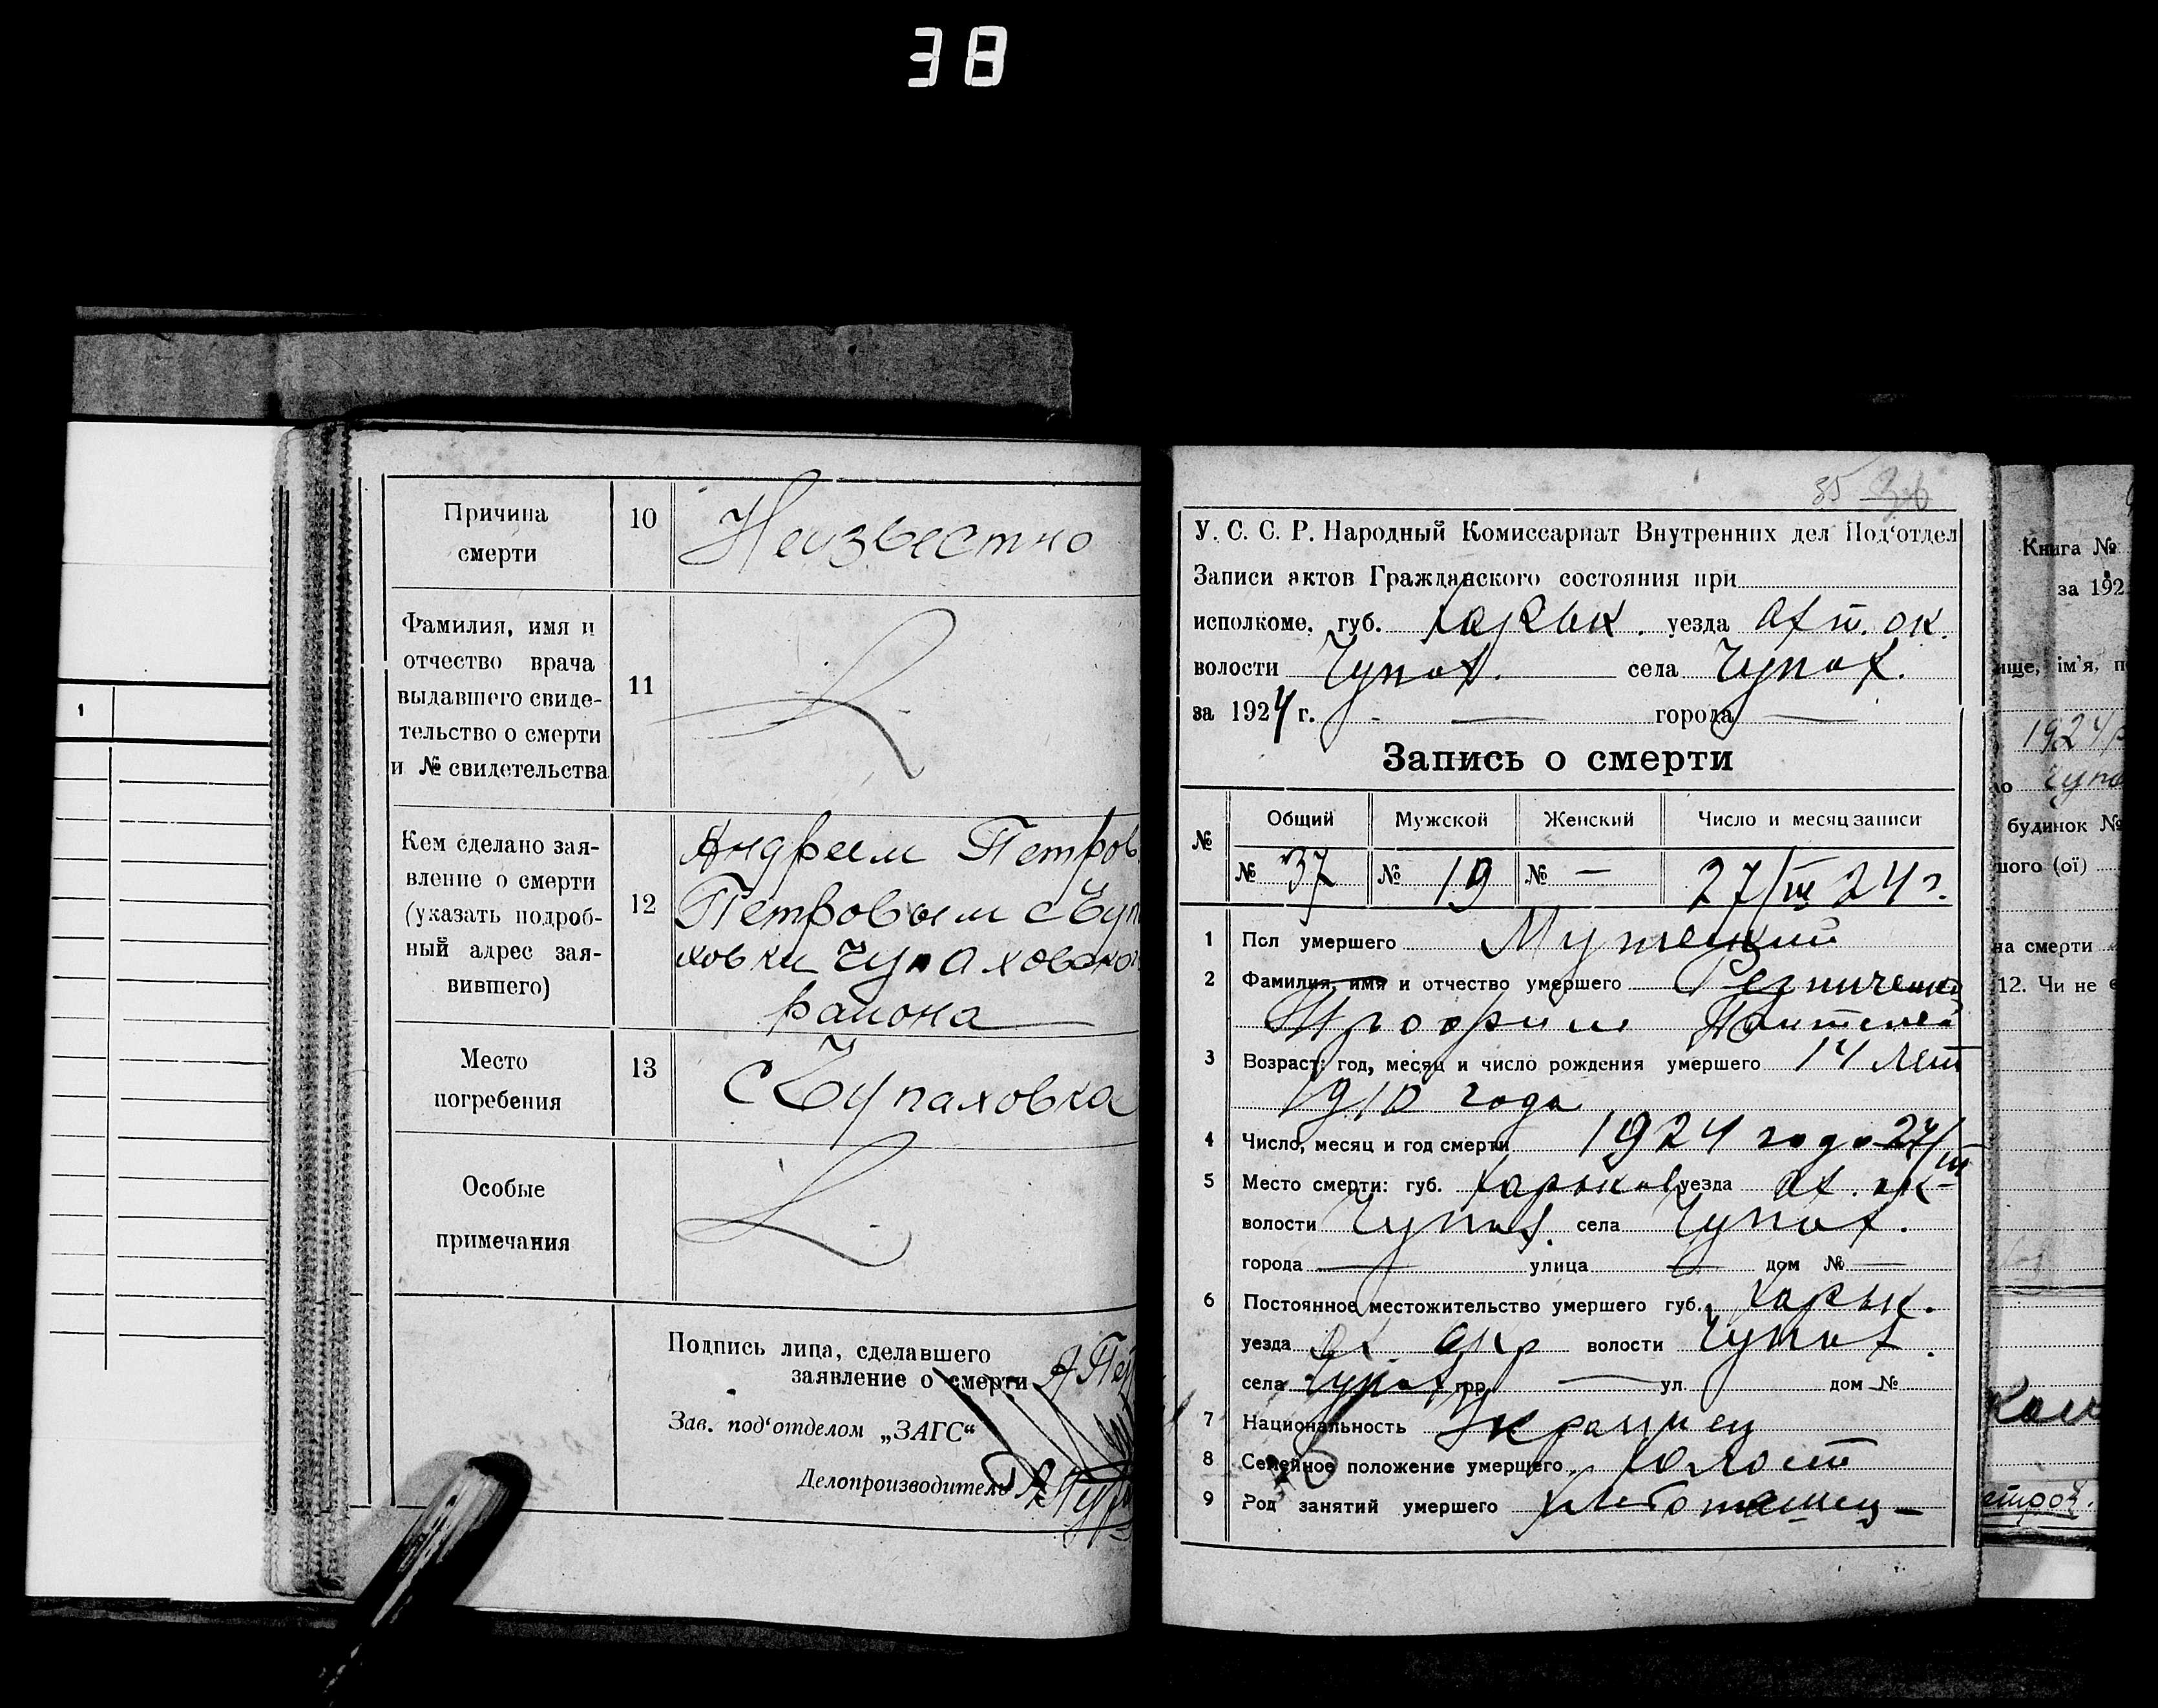 38
1
Причина
смерти
10
Неизвестно
Фамилия, имя и
отчество врача
выдавшего свиде-
тельство о смерти
и № свидетельства
11
Кем сделано зая-
вление о смерти
(указать подроб-
ный адрес зая-
вившего)
12
Андреем Петров
Петровым с Чуп
ховки Чупаховско
района
Место
погребения
13
с Чупаховка
Особые
примечания
Подпись лица, сделавшего
заявление о смерти А Пет
Зав. под‘отделом „ЗАГС“
Делопроизводитель
35 36
У. С. С. Р. Народный Комиссариат Внутренних дел Под‘отдел
Записи актов Гражданского состояния при
исполкоме, губ. Харьк. уезда Ахт. ок.
волости Чупах. села Чупах.
за 1924 г. — города —
Запись о смерти
№
Общий Мужской Женский Число и месяц записи
№ 37 № 19 № — 27/III 24 г.
1 Пол умершего Мужецкий
2 Фамилия, имя и отчество умершего Резниченко
Пантелей
3 Возраст: год, месяц и число рождения умершего 14 лет
1910 года
4 Число, месяц и год смерти 1924 года 27/III
5 Место смерти: губ. Харьков уезда Ах. ок
волости Чупах. села Чупах.
города — улица — дом № —
6 Постоянное местожительство умершего губ. Харьк.
уезда Ах. окр волости Чупах.
села Чупах гор. — ул. дом №
7 Национальность Украинец
8 Семейное положение умершего Холост
9 Род занятий умершего хлебопашец —
Книга №
за 192
ище, ім’я, п
1924 р
ло Чупа
будинок №
ного (ої)
на смерти
12. Чи не є